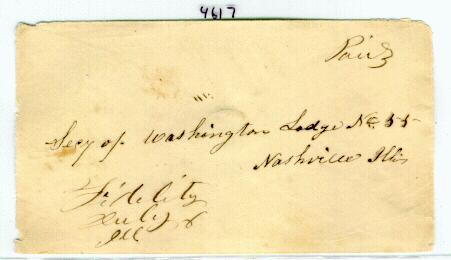 4617
Paid
Secy of Washington Lodge No. 55
Nashville Ills
Fidelity
July 8
Ill